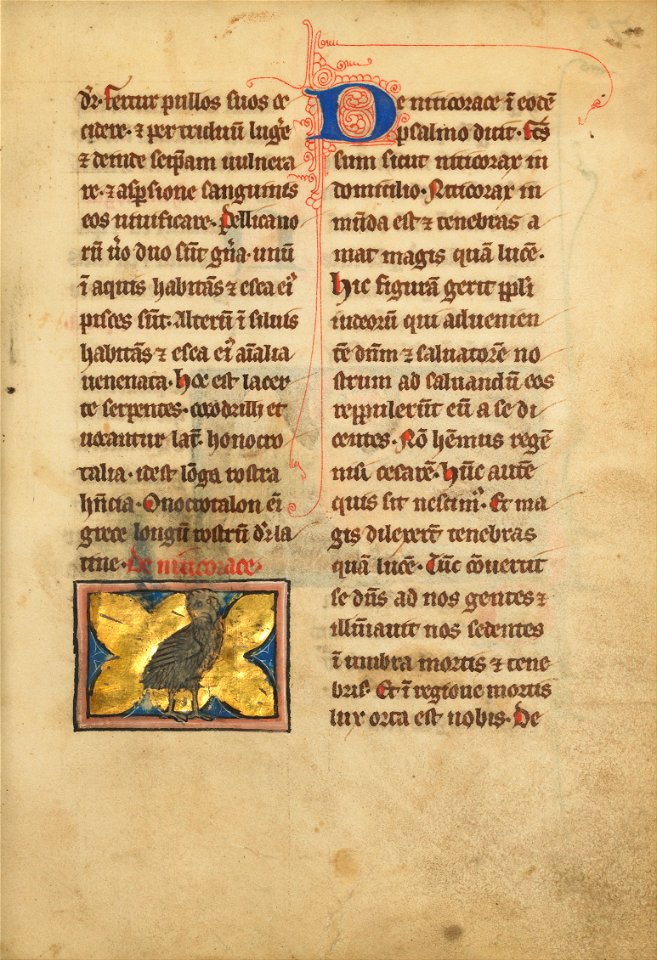 dr̃· Fertur pullos suos oc
cidere· ⁊ per triduũ luge̾
⁊ deinde seip̃am uulnera
re· ⁊ asp̃sione sanguinis
eos uiuificare· Pellicano
rũ ũo duo sũt gña· unũ
ĩ aquis habitãs ⁊ esca ei᷒
pisces sũt· Alterũ ĩ siluis
habitãs ⁊ esca ei᷒ aĩalia
uenenata· hoc est lacer
te serpentes· cocodrilli et
uocantur lat̃· honocro
talia· idest lõga rostra
hñcia· Onocrotalon eĩ
grece longũ rostrũ dr̃ la
tine· De niticorace·
De niticorace ĩ eodẽ
psalmo dicit· Fc̃s
sum sicut niticorax in
domicilio· Niticorax in
mũda est ⁊ tenebras a
mat magis quã lucẽ·
hic figurã gerit ppl̃i
iudeorũ qui aduenien
tẽ dñm ⁊ saluatorẽ no
strum ad saluandũ eos
reppulerũt eũ a se di
centes· Nõ hẽmus regẽ
nisi cesarẽ· hũc autẽ
quis sit nescim᷒· Et ma
gis dilexerũt tenebras
quã lucẽ· Tũc cõuertit
se dñs ad nos gentes ⁊
illũiauit nos sedentes
ĩ umbra mortis ⁊ tene
bris· Et ĩ regione mortis
lux orta est nobis· De